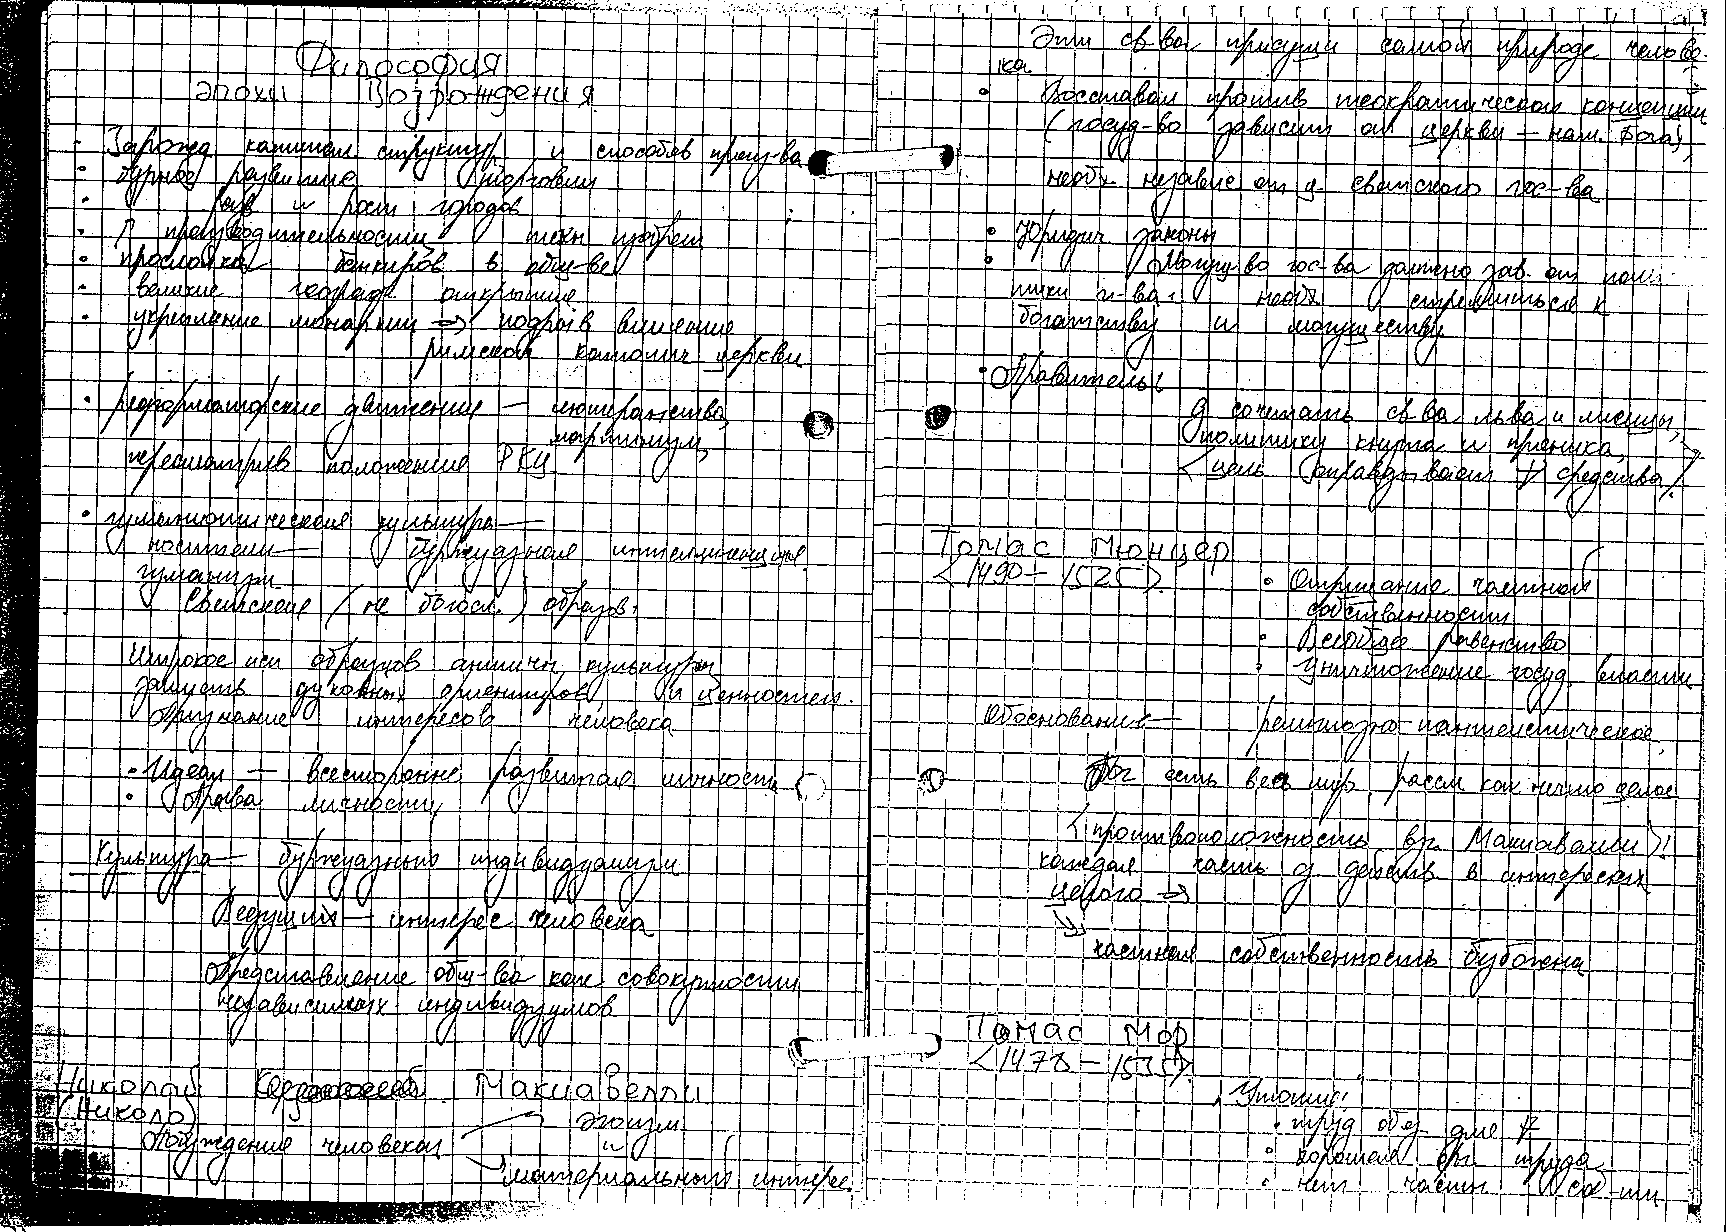 Философия
эпохи Возрождения
· Зарожд капитал. структур и способов произ-ва
· бурное развитие торговли
· разв и рост городов
· ↑ производительности техн изобрет
· прослойка банкиров в общ-ве
· великие географ открытие
· укрепление монархии → подрыв влияние
римской католич церкви
· реформаторские движение — лютеранства,
пересматрив положение РКЦ
· гуманистическая культура —
носители — буржуазная интеллигенция.
гуманизм
Светское (не богосл.) образов.
Широкое исп образцов античн культуры
духовных ориентиров и ценностей.
Признание интересов человека
· Идеал — всесторонне развитая личность
· Права личности
Культура — буржуазного индивидуализм
Ведущий — интерес человека
Представление общ-ва как совокупности
независимых индивидуумов
Николай Макиавелли
(Никола)
Побуждение человека эгоизм
и
материальный интерес
Эти св-ва присущи самой природе челове-
ка
· Восставал против теократической концепции
(госуд-во зависит от церкви — нам. Бога),
необх независ от д. светского гос-ва
· Юридич законы
· Могущ-во гос-ва должно зав. от поли-
тики г-ва: необх стремиться к
богатству и могуществу
· Правитель:
д сочетать св-ва льва и лисицы,
политику кнута и пряника,
<цель оправдывает ∀ средства>!
Томас Мюнцер
<1490 — 1525>
· Отрицание частной
собственности
· Всеобщее равенство
· Уничтожение госуд. власти
Обоснование — религиозно-пантеистическое
Бог есть весь мир, рассм как нечто целое
<противоположность вз. Макиавелли>!
каждая часть д действ в интересах
целого →
частная собственность
Томас Мор
<1478 — 1535>
"Утопия"
· труд обяз для ∀
· хорошая орг. труда
· нет частн соб-ти